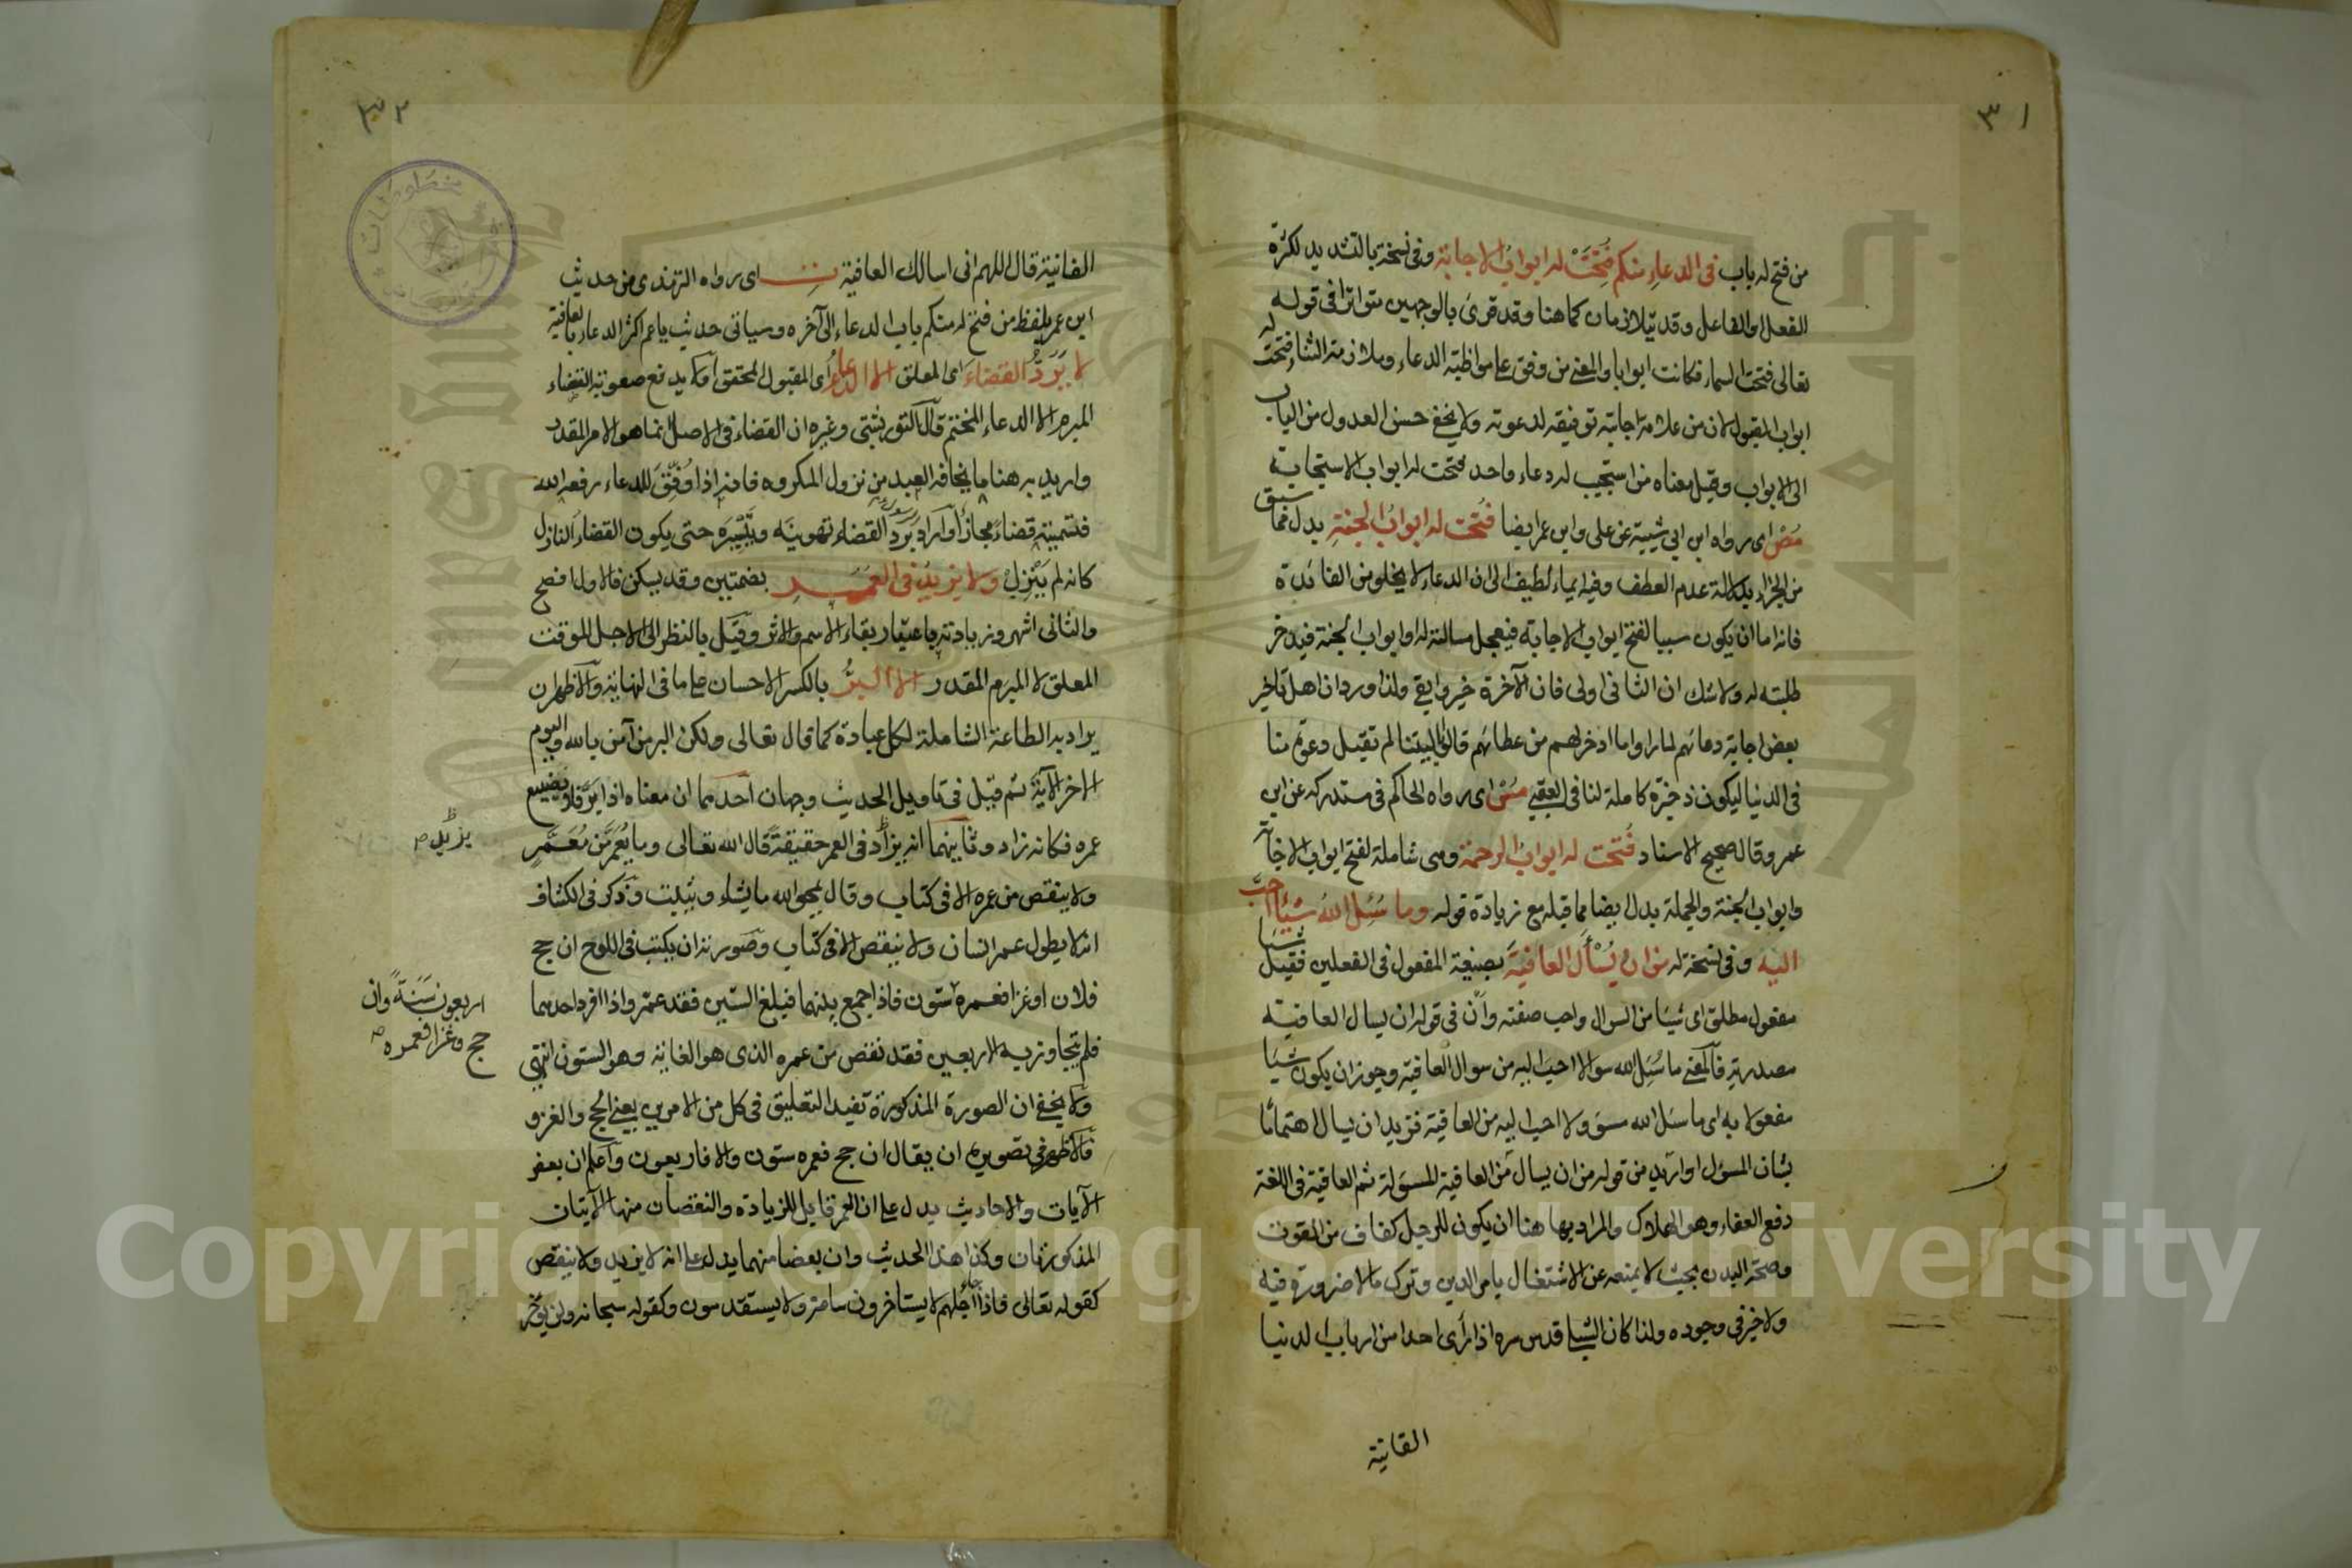 ٣١
من فتح له باب في الدعاء منكم فُتِحَتْ له ابوابُ الاجابة وفى نسخة بالتشديد لكثرة
الفعل او الفاعل وقد يتلازمان كما هنا وقد قرئ بالوجهين متواترا فى قوله
تعالى فتحت السماء فكانت ابوابا والمعنى من وفق على مواظبة الدعاء وملازمة الثناء فتحت له
ابواب القبول لان من علامة اجابته توفيقه لدعوته ولا يخفى حسن العدول من الباب
الى الابواب وقيل معناه من استجيب له دعاء واحد فتحت له ابواب الاستجابة
مُصْ اى رواه ابن ابي شيبة عن على وابن عمر ايضا فُتحت له ابوابُ الجنةِ بدل مما سبق
من الجزاء بدلالة عدم العطف وفيه ايماء لطيف الى ان الدعاء لا يخلو من الفائدة
فانه اما ان يكون سببا لفتح ابواب الاجابة فيعجل مسالته له او ابواب الجنة فيدخر
طلبته له ولا شك ان الثانى اولى فان الآخرة خير وابقى ولذا ورد ان اهل تاخير
بعض اجابة دعائهم لما راوا ما ادخر لهم من عطائهم قالوا ليتنا لم تقبل دعوة منا
فى الدنيا ليكون ذخيرة كاملة لنا فى العقبى مُسْ اى رواه الحاكم فى مستدركه عن ابن
عمر وقال صحيح الاسناد فُتحت له ابوابُ الرحمة وهى شاملة لفتح ابواب الاجابة
وابواب الجنة والجملة بدل ايضا مما قبله مع زيادة قوله وما سُئِل اللهُ شيئا احبَّ
اليه وفى نسخة له من ان يُسْأَل العافيةَ بصيغة المفعول فى الفعلين فقيل شيئا
مفعول مطلق اى شيئا من السوال واحب صفته وان فى قوله ان يسال العافية
مصدرية فالمعنى ما سُئِل الله سوالا احب اليه من سوال العافية وجوز ان يكون شيئا
مفعولا به اى ما سئل الله مسؤولا احب اليه من العافية فزيد ان يسال اهتماما
بشان المسؤل او اريد من قوله من ان يسال من العافية المسؤلة ثم العافية فى اللغة
دفع العفاء وهو الهلاك والمراد بها هنا ان يكون للرجل كفاف من القوت
وصحة البدن بحيث لا يمنعه عن الاشتغال بامر الدين وترك ما لا ضرورة فيه
ولا خير فى وجوده ولذا كان الشبلى قدس سره اذا رأى احدا من ارباب الدنيا
الفانية
٣٢
الفانية قال اللهم انى اسالك العافية ت اى رواه الترمذى من حديث
ابن عمر بلفظ من فتح له منكم باب الدعاء الى آخره وسياتى حديث يا عم اكثر الدعاء بالعافية
لا يَرُدُّ القضاءَ اى المعلق الا الدعاءُ اى المقبول المحقق او لا يدفع صعوبة القضاء
المبرم الا الدعاء المختتم قال التوربشتى وغيره ان القضاء فى الاصل انما هو الامر المقدر
واريد به هنا ما يخافه العبد من نزول المكروه فانه اذا وُفِّقَ للدعاء رفعه الله
فتسميته قضاءً مجازًا او اراد برَدّ القضاء تهوينَه وتَيْسِيرَه حتى يكون القضاء النازل
كانه لم يَنْزِلْ ولا يزيدُ فى العُمُرِ بضمتين وقد يسكن فالاول افصح
والثانى اشهر وزيادته باعتبار بقاء الاسم والاثر وقيل بالنظر الى الاجل الموقت
المعلق لا المبرم المقدر الا البِرُّ بالكسر الاحسان على ما فى النهاية والاظهر ان
يراد به الطاعة الشاملة لكل عبادة كما قال تعالى ولكن البر من آمن بالله واليوم
الاخر الآية ثم قيل فى تاويل الحديث وجهان احدهما ان معناه اذا برّ فلا يضيع
عمره فكانه زاد وثانيهما انه يزاد فى العمر حقيقةً قال الله تعالى وما يُعَمَّر من مُعَمَّرٍ
يزيل صح
ولا ينقص من عمره الا فى كتاب وقال يمحو الله ما يشاء ويثبت وذكر فى الكشاف
انه لا يطول عمر انسان ولا ينقص الا فى كتاب وصورته ان يكتب فى اللوح ان حج
فلان او غزا فعمره ستون فاذا جمع بينهما فبلغ الستين فقد عمّر واذا افرد احدهما
اربعون سَنَةً وان
حج وغزا فعمره صح
فلم يتجاوز به الاربعين فقد نقص من عمره الذى هو الغاية وهو الستون انتهى
ولا يخفى ان الصورة المذكورة تفيد التعليق فى كل من الامرين يعنى الحج والغزو
فالاظهر فى تصويره ان يقال ان حج فعمره ستون والا فاربعون واعلم ان بعض
الآيات والاحاديث يدل على ان العمر قابل للزيادة والنقصان منها الآيتان
المذكورتان وكذا هذا الحديث وان بعضا منهما يدل على انه لا يزيد ولا ينقص
كقوله تعالى فاذا جاء اجلهم لا يستاخرون ساعة ولا يستقدمون وكقوله سبحانه ولن يؤخر
Copyright © King Saud University